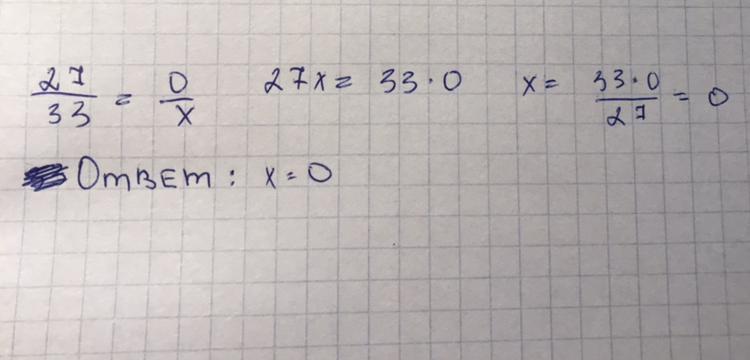 27/33 = 0/x 27x = 33·0 x = 33·0/27 = 0
Ответ: x = 0